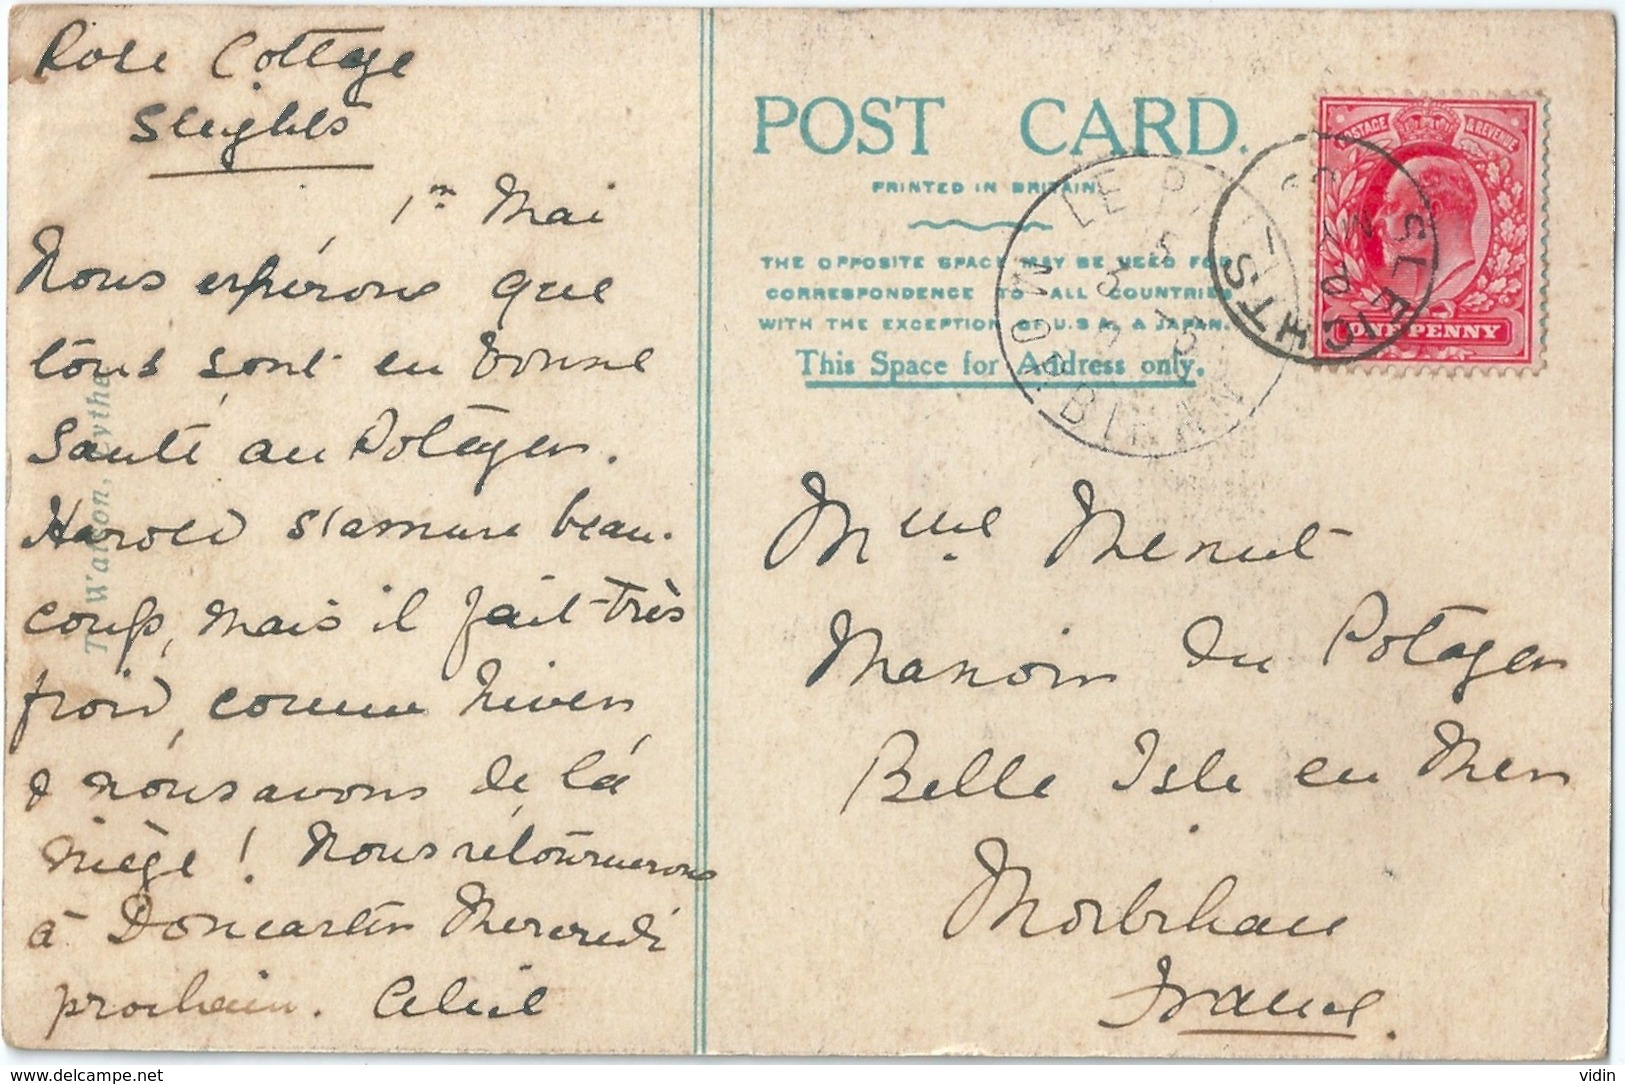 Rose Cottage
Sleights
1er Mai
Nous espérons que
tous sont en bonne
Santé au Potager.
Harold s'amuse beau-
coup, mais il fait très
froid, comme hiver
& nous avons de la
niège! Nous retournerons
à Doncaster Mercredi
prochain. Cecil
T. Watson, Lythe
POST CARD.
PRINTED IN BRITAIN
THE OPPOSITE SPACE MAY BE USED FOR
CORRESPONDENCE TO ALL COUNTRIES
WITH THE EXCEPTION OF U.S.A. & JAPAN.
This Space for Address only.
POSTAGE & REVENUE
ONE PENNY
SLEIGHTS
LE PALAIS
MORBIHAN
Mme Menut
Manoir du Potager
Belle Isle en Mer
Morbihan
France.
delcampe.net
vidin